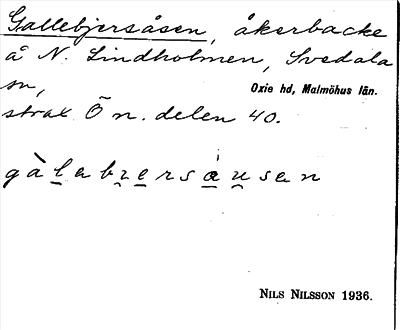 Gallebjersåsen, åkerbacke
å N. Lindholmen, Svedala
sn,
Oxie hd, Malmöhus län.
strax Ö n. delen 40.
gàlebɩersáusen
NILS NILSSON 1936.